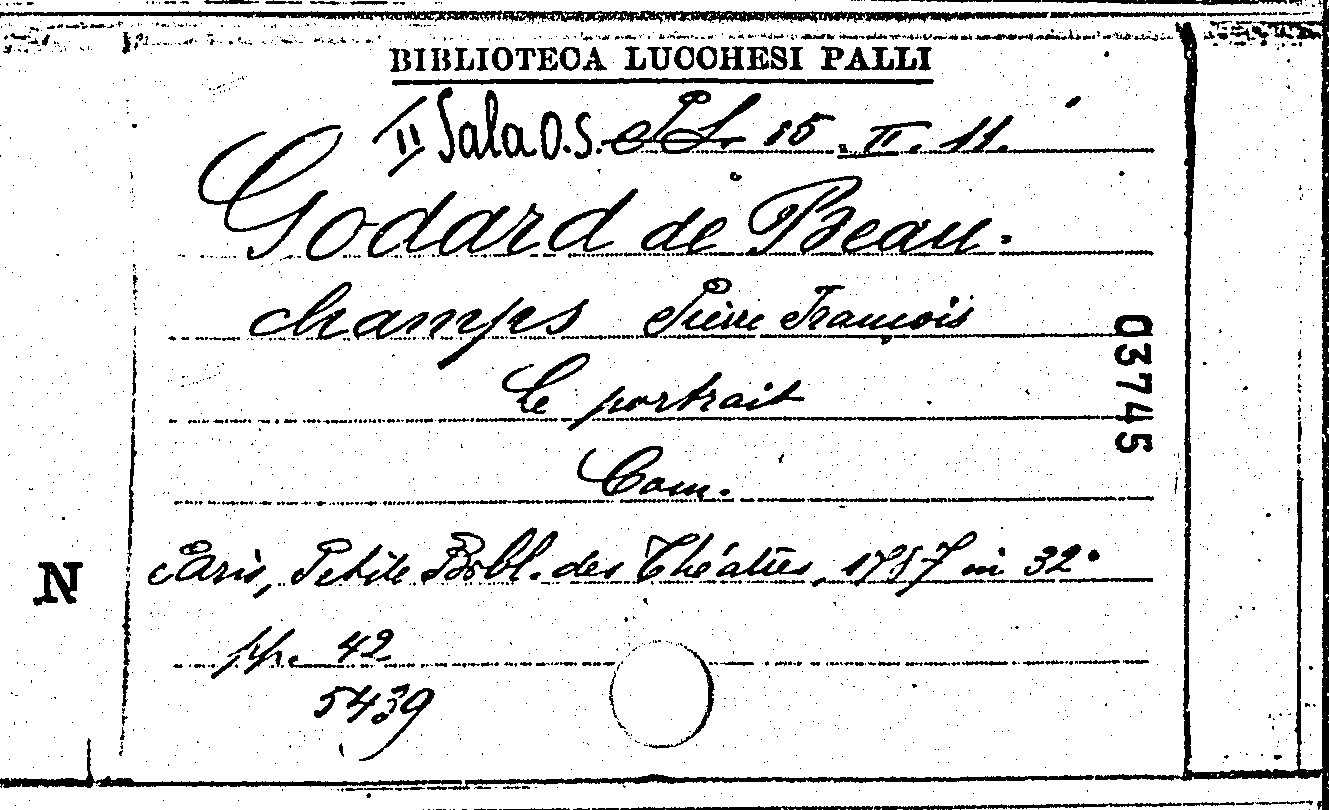 BIBLIOTECA LUCCHESI PALLI
II Sala O.S. PL. 15. II. 11.
Godard de Beau-
champs Pierre François
Le portrait
Com.
Paris, Petite Bibl. des Théatres, 1787 in 32°
pp. 42
5439
03745
N